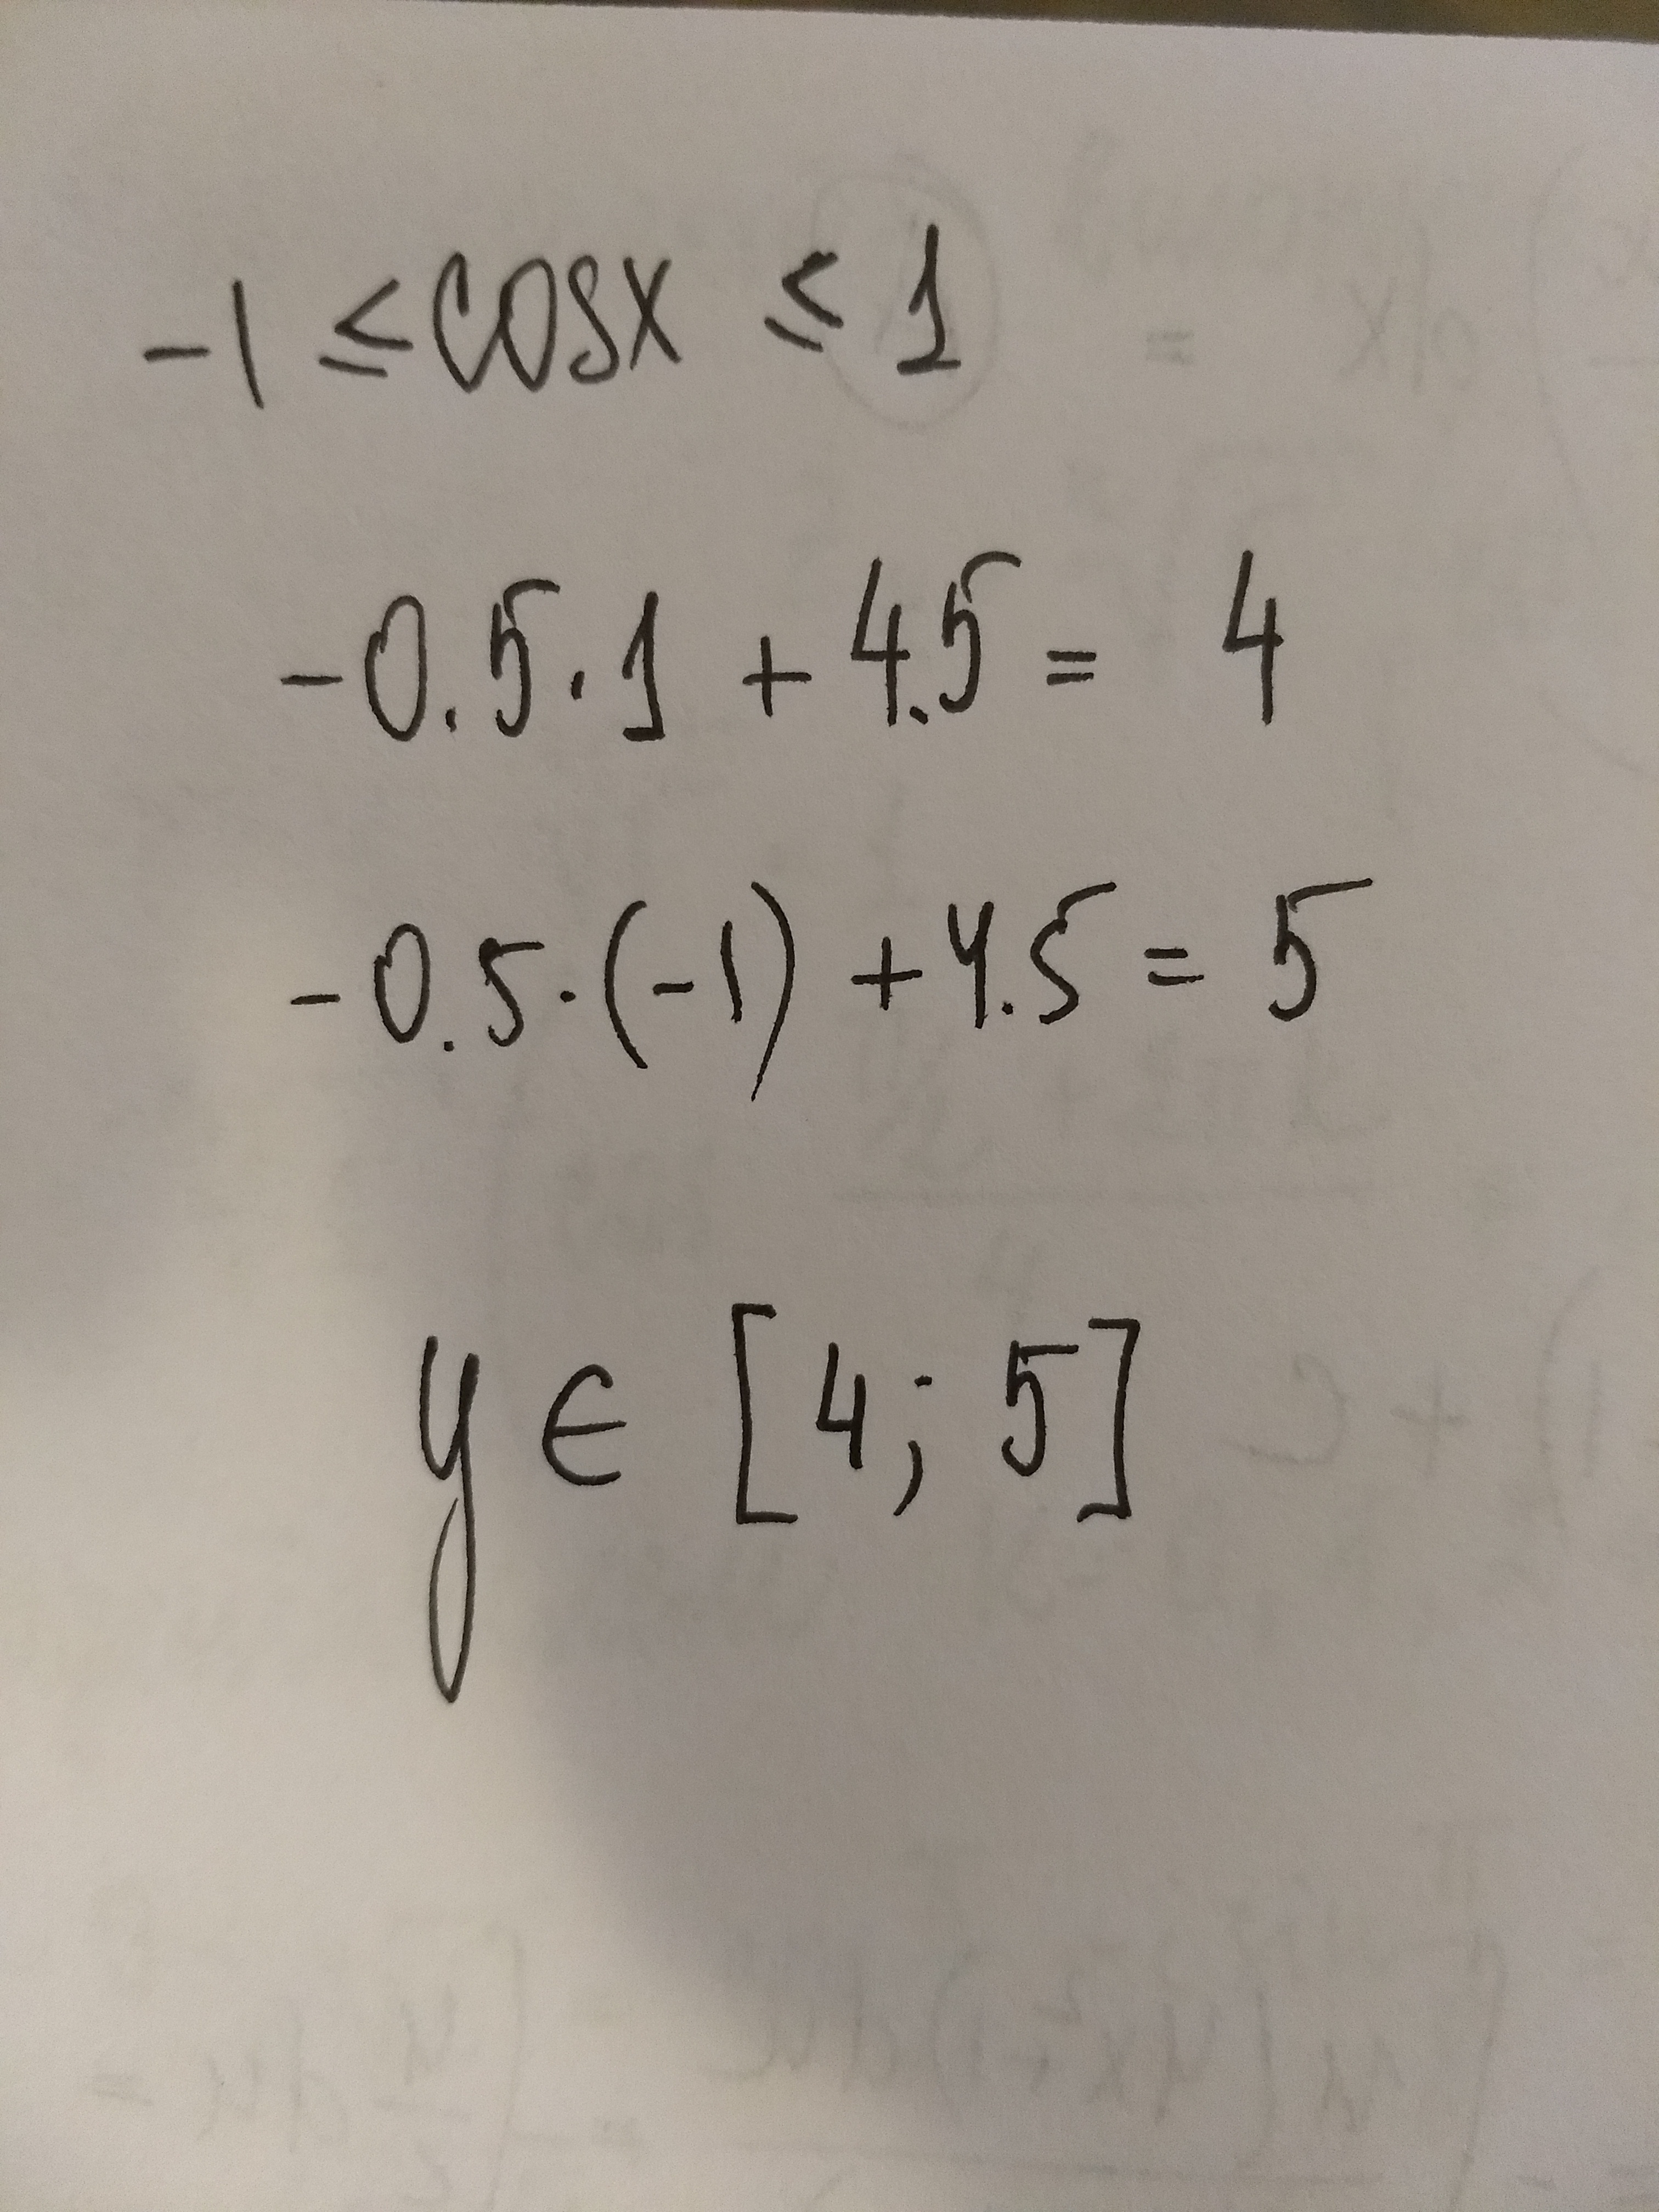 -1 ≤ cosx ≤ 1
-0.5·1 + 4.5 = 4
-0.5·(-1) + 4.5 = 5
y ∈ [4; 5]